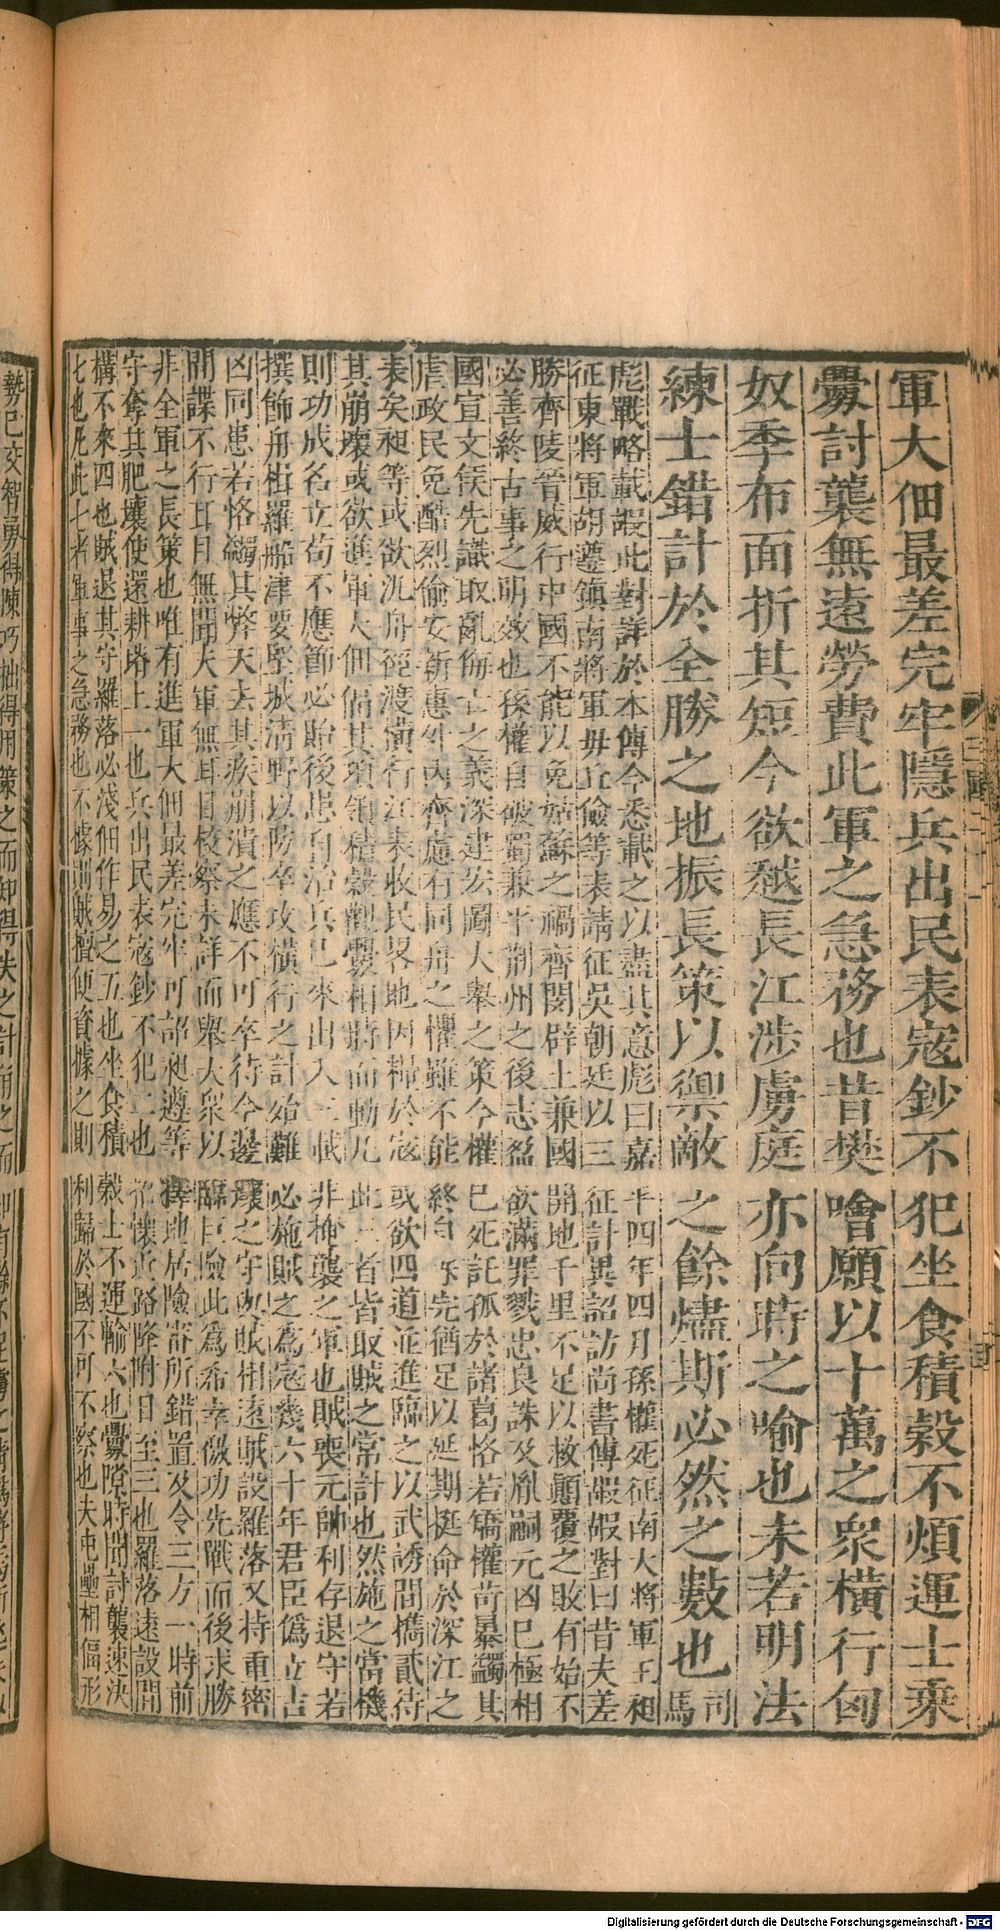 軍大佃最差完牢隱兵出民表寇鈔不犯坐食積穀不煩運士乘
釁討襲無遠勞費此軍之急務也昔樊噲願以十萬之衆橫行匈
奴季布面折其短今欲越長江涉虜庭亦向時之喻也未若明法
練士錯計於全勝之地振長策以禦敵之餘燼斯必然之數也司馬
彪戰略載嘏此對詳於本傳今悉載之以盡其意彪曰嘉平四年四月孫權死征南大將軍王昶
征東將軍胡遵鎮南將軍毋丘儉等表請征吳朝廷以三征計異詔訪尚書傅嘏嘏對曰昔夫差
勝齊陵晉威行中國不能以免姑蘇之禍齊閔辟土兼國開地千里不足以救顛覆之敗有始不
必善終古事之明效也孫權自破蜀兼平荆州之後志盈欲滿罪戮忠良誅及胤嗣元凶已極相
國宣文侯先識取亂侮亡之義深建宏圖大舉之策今權已死託孤於諸葛恪若矯權苛暴蠲其
虐政民免酷烈偷安新惠外內齊慮有同舟之懼雖不能終自保完猶足以延期挺命於深江之
表矣昶等或欲汎舟徑渡橫行江表收民畧地因糧於寇或欲四道並進臨之以武誘間攜貳待
其崩壞或欲進軍大佃偪其項領積穀觀釁相時而動凡此三者皆取賊之常計也然施之當機
則功成名立苟不應節必貽後患自治兵已來出入三載非掩襲之軍也賊喪元帥利存退守若
撰飾舟楫羅船津要堅城清野以防卒攻橫行之計始難必施賊之為寇幾六十年君臣偽立吉
凶同患若恪蠲其弊天去其疾崩潰之應不可卒待今邊壤之守與賊相遠賊設羅落又持重密
間諜不行耳目無聞夫軍無耳目校察未詳而舉大衆以臨巨險此為希幸徼功先戰而後求勝
非全軍之長策也唯有進軍大佃最差完牢可詔昶遵等擇地居險審所錯置及令三方一時前
守奪其肥壤使還耕塉土一也兵出民表寇鈔不犯二也招懷近路降附日至三也羅落遠設間
構不來四也賊退其守羅落必淺佃作易之五也坐食積穀士不運輸六也釁隙時聞討襲速決
七也凡此七者軍事之急務也不據則賊擅便資據之則利歸於國不可不察也夫屯壘相偪形
勢已交智勇得陳巧拙得用策之而知得失之計角之而
Digitalisierung gefördert durch die Deutsche Forschungsgemeinschaft - DFG